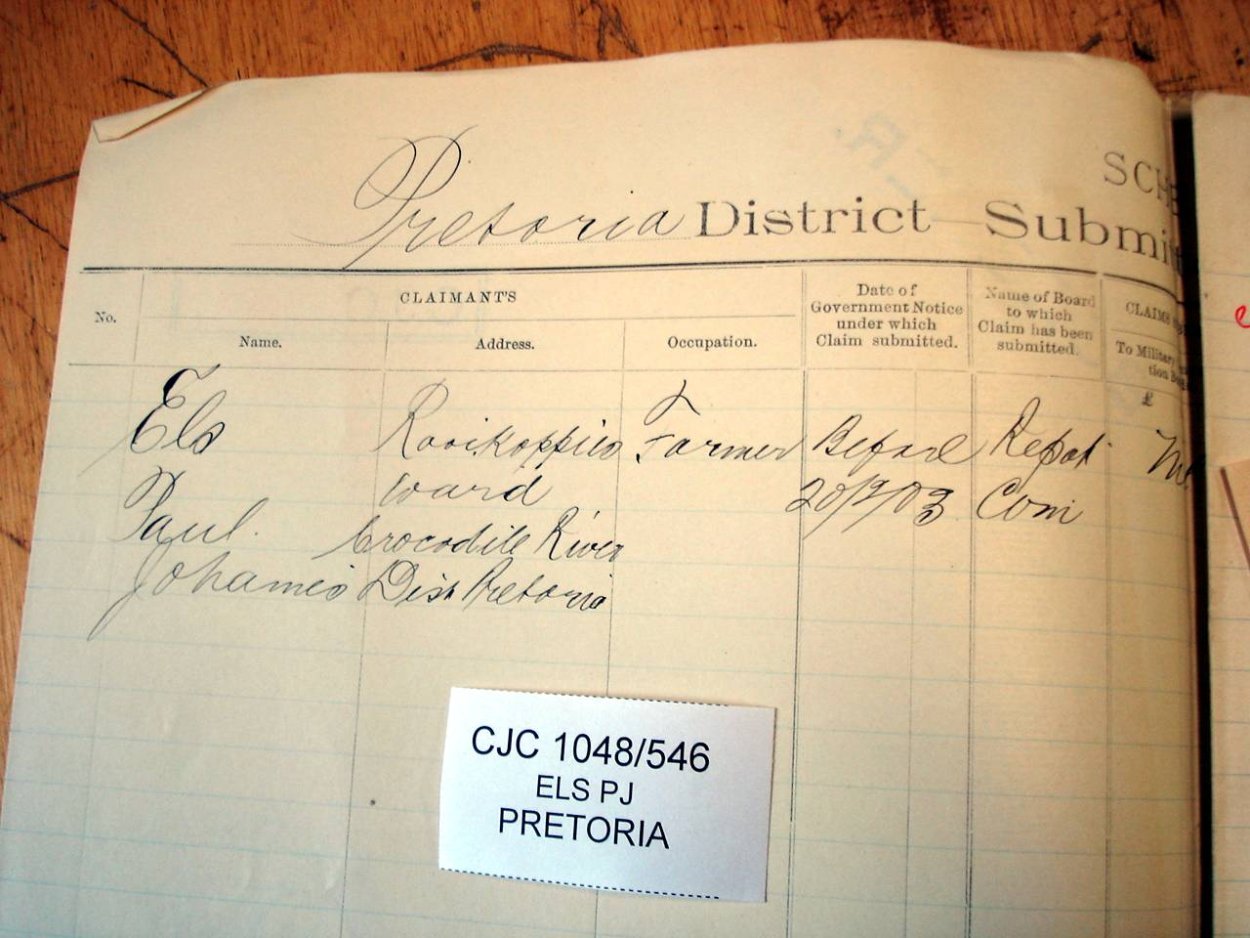 SCHE
Pretoria District Submi
No.
CLAIMANT'S
Name.
Address.
Occupation.
Date of
Government Notice
under which
Claim submitted.
Name of Board
to which
Claim has been
submitted.
CLAIMS
To Military
tion
£
Els Rooikoppies Farmer Before Repat
ward 20/9/03 Com
Paul. Crocodile River
Johannes Dist Pretoria
CJC 1048/546
ELS PJ
PRETORIA